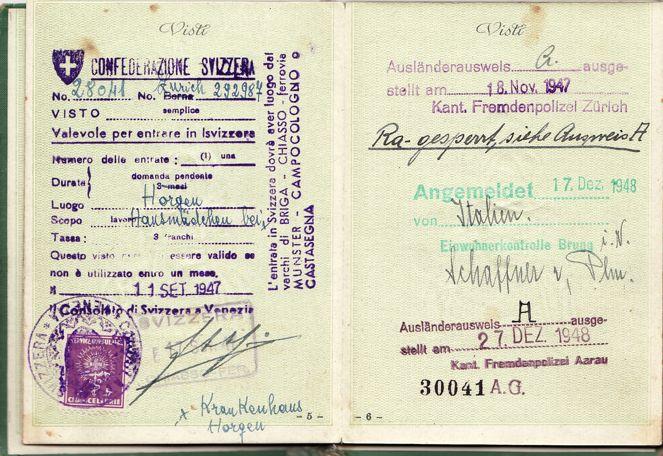 Visti
CONFEDERAZIONE SVIZZERA
No. 28041 No. Berna Zürich 292987
VISTO semplice
Valevole per entrare in Isvizzera
Numero delle entrate: (1) una
domanda pendente
Durata 3 mesi
Luogo Horgen
Scopo lavoro Hausmädchen bei x
Tassa: 3 franchi
Questo visto essere valido se
non è utilizzato entro un mese.
11 SET. 1947
Il Consolato di Svizzera a Venezia
SVIZZERA
x Krankenhaus
Horgen
- 5 -
L'entrata in Svizzera dovrà aver luogo dai
varchi di BRIGA - CHIASSO - ferrovia
MUNSTER - CAMPOCOLOGNO o
CASTASEGNA
Visti
Ausländerausweis A. ausge-
stellt am 18. Nov. 1947
Kant. Fremdenpolizei Zürich
Ra-gesperrt, siehe Ausweis A
Angemeldet 17. Dez. 1948
von Italien.
Einwohnerkontrolle Brugg
Schaffner
Ausländerausweis A ausge-
stellt am 27. DEZ. 1948
Kant. Fremdenpolizei Aarau
30041 A.G.
- 6 -